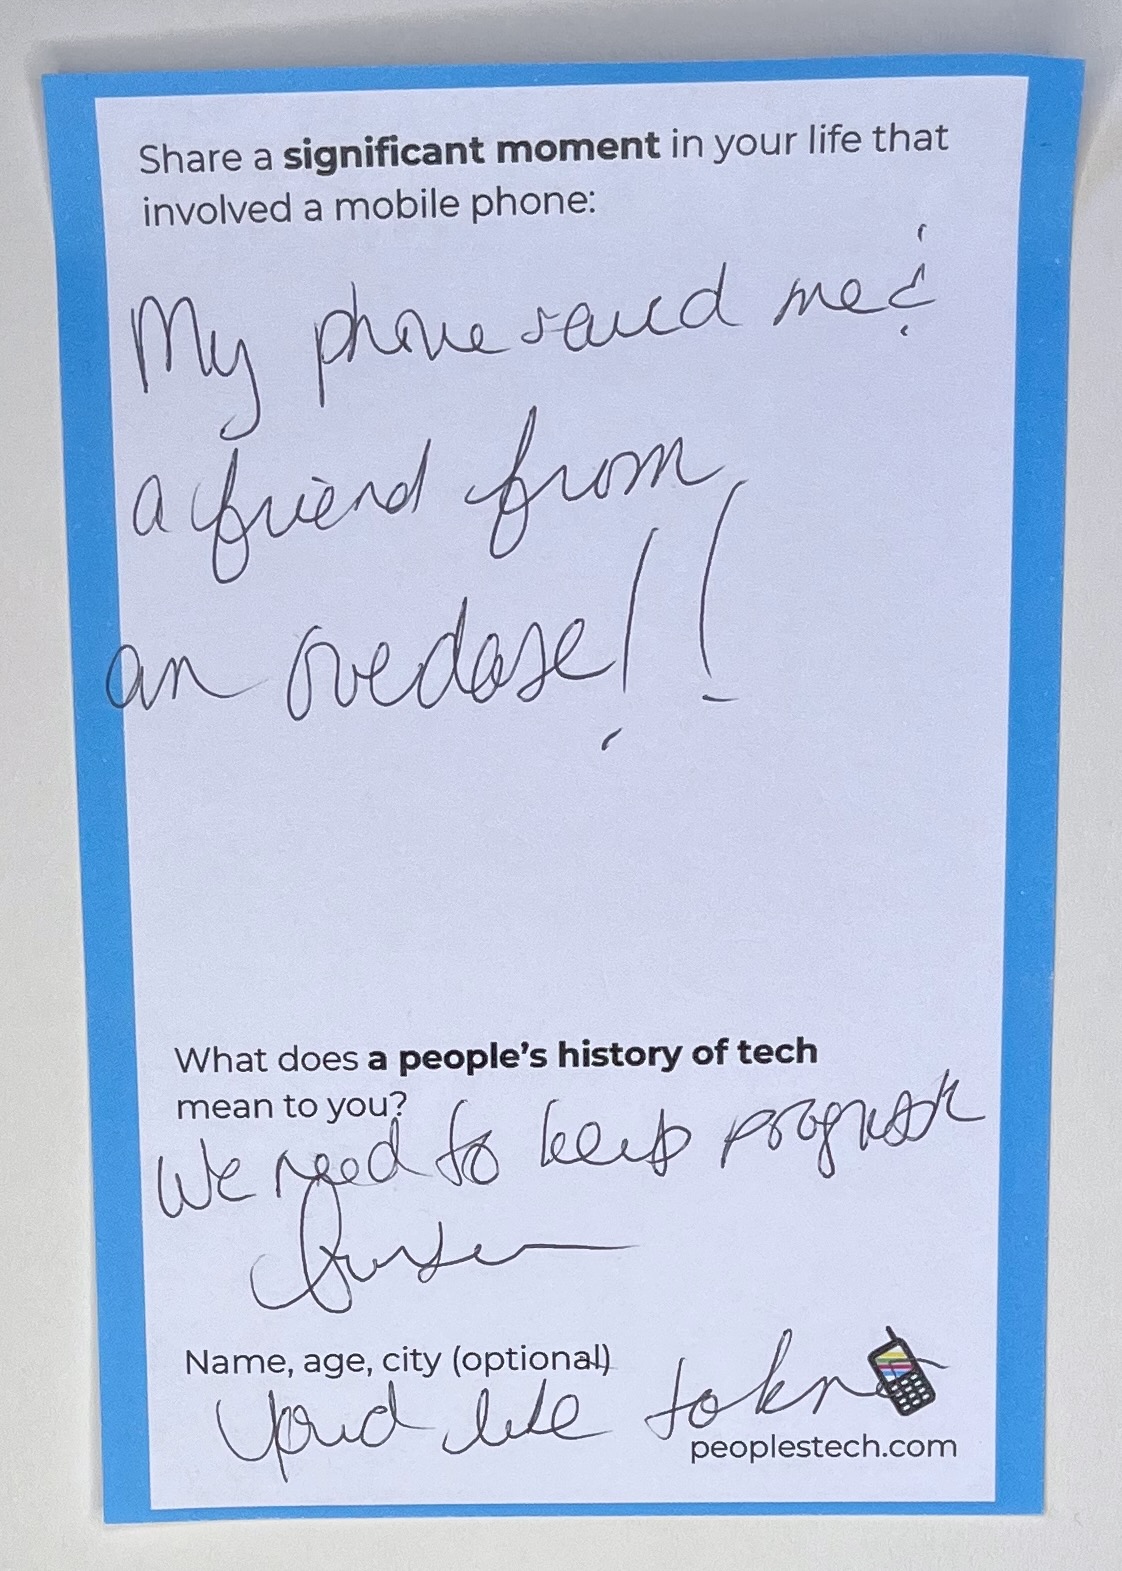 Share a significant moment in your life that
involved a mobile phone:
My phone saved me &
a friend from
an overdose!!
What does a people's history of tech
mean to you?
We need to keep
Name, age, city (optional)
like to
peoplestech.com